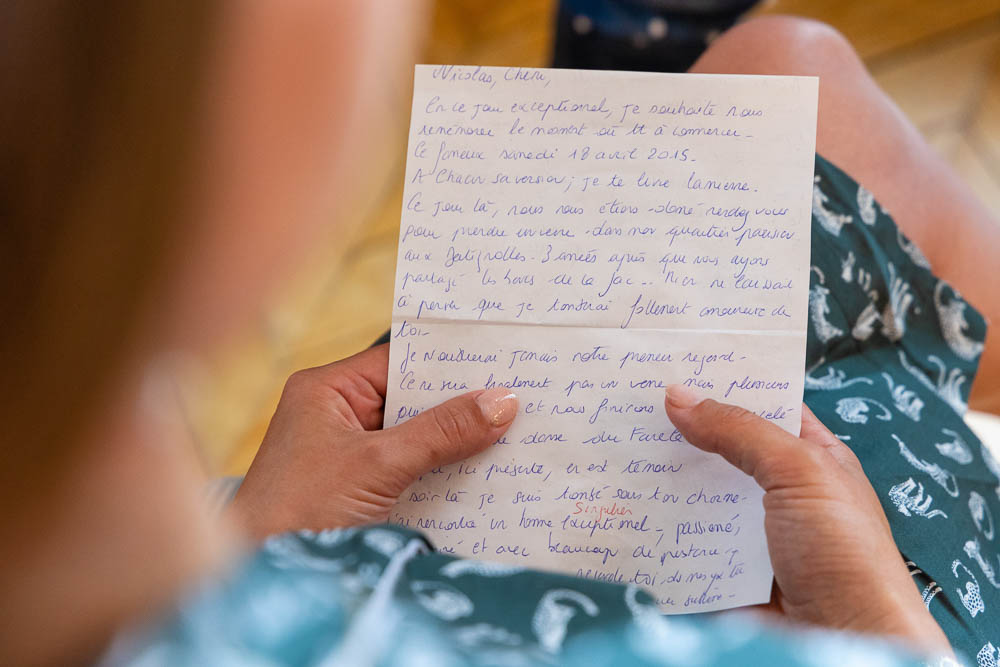 Nicolas, Chéri,
En ce jour exceptionnel, je souhaite nous
remémorer le moment où tt à commencer -
Ce fameux samedi 18 avril 2015.
A Chacun sa version ; je te livre la mienne.
Ce jour là, nous nous étions donné rendez vous
pour prendre un verre dans nos quartiers parisien
aux Batignolles - 3 années après que nous ayons
partagé les bancs de la fac ... Rien ne laissait
à penser que je tomberai follement amoureuse de
toi -
Je N'oublierai jamais notre premier regard -
Ce ne sera finalement pas un verre mais plusieurs
et nous finirons
de danse du
ici présente, en est témoin
soir là je suis tombé sous ton charme -
Singulier
rencontré un homme exceptionnel, passionné,
et avec beaucoup de